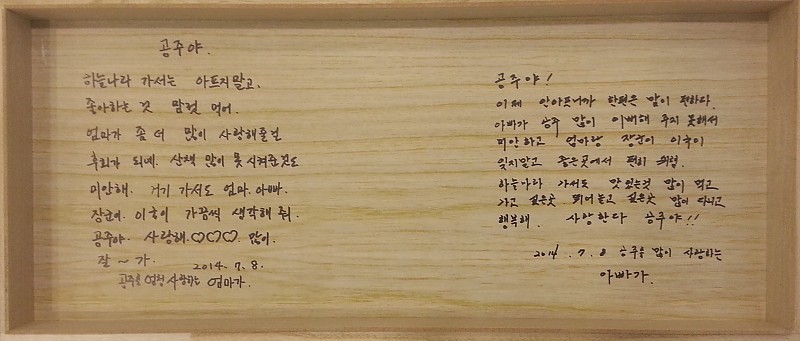 공주야.
하늘나라 가서는 아프지말고,
좋아하는 것 맘껏 먹어.
엄마가 좀 더 많이 사랑해줄걸
후회가 되네. 산책 많이 못 시켜준것도
미안해. 거기 가서도 엄마. 아빠.
장군이. 이쁙이 가끔씩 생각해 줘.
공주야. 사랑해.♡♡♡ 많이.
잘 ~ 가. 2014. 7. 8.
공주를 엄청 사랑하는 엄마가.
공주야!
이제 안아프니까 한편은 맘이 편하다.
아빠가 공주 많이 이뻐해 주지 못해서
미안하고 엄마랑 장군이 이쁙이
잊지말고 좋은곳에서 편히
하늘나라 가서도 맛있는것 많이 먹고
가고 싶은곳 뛰어놀고 싶은곳 많이 다니고
행복해. 사랑한다 공주야!!
2014. 7. 8 공주을 많이 사랑하는
아빠가.